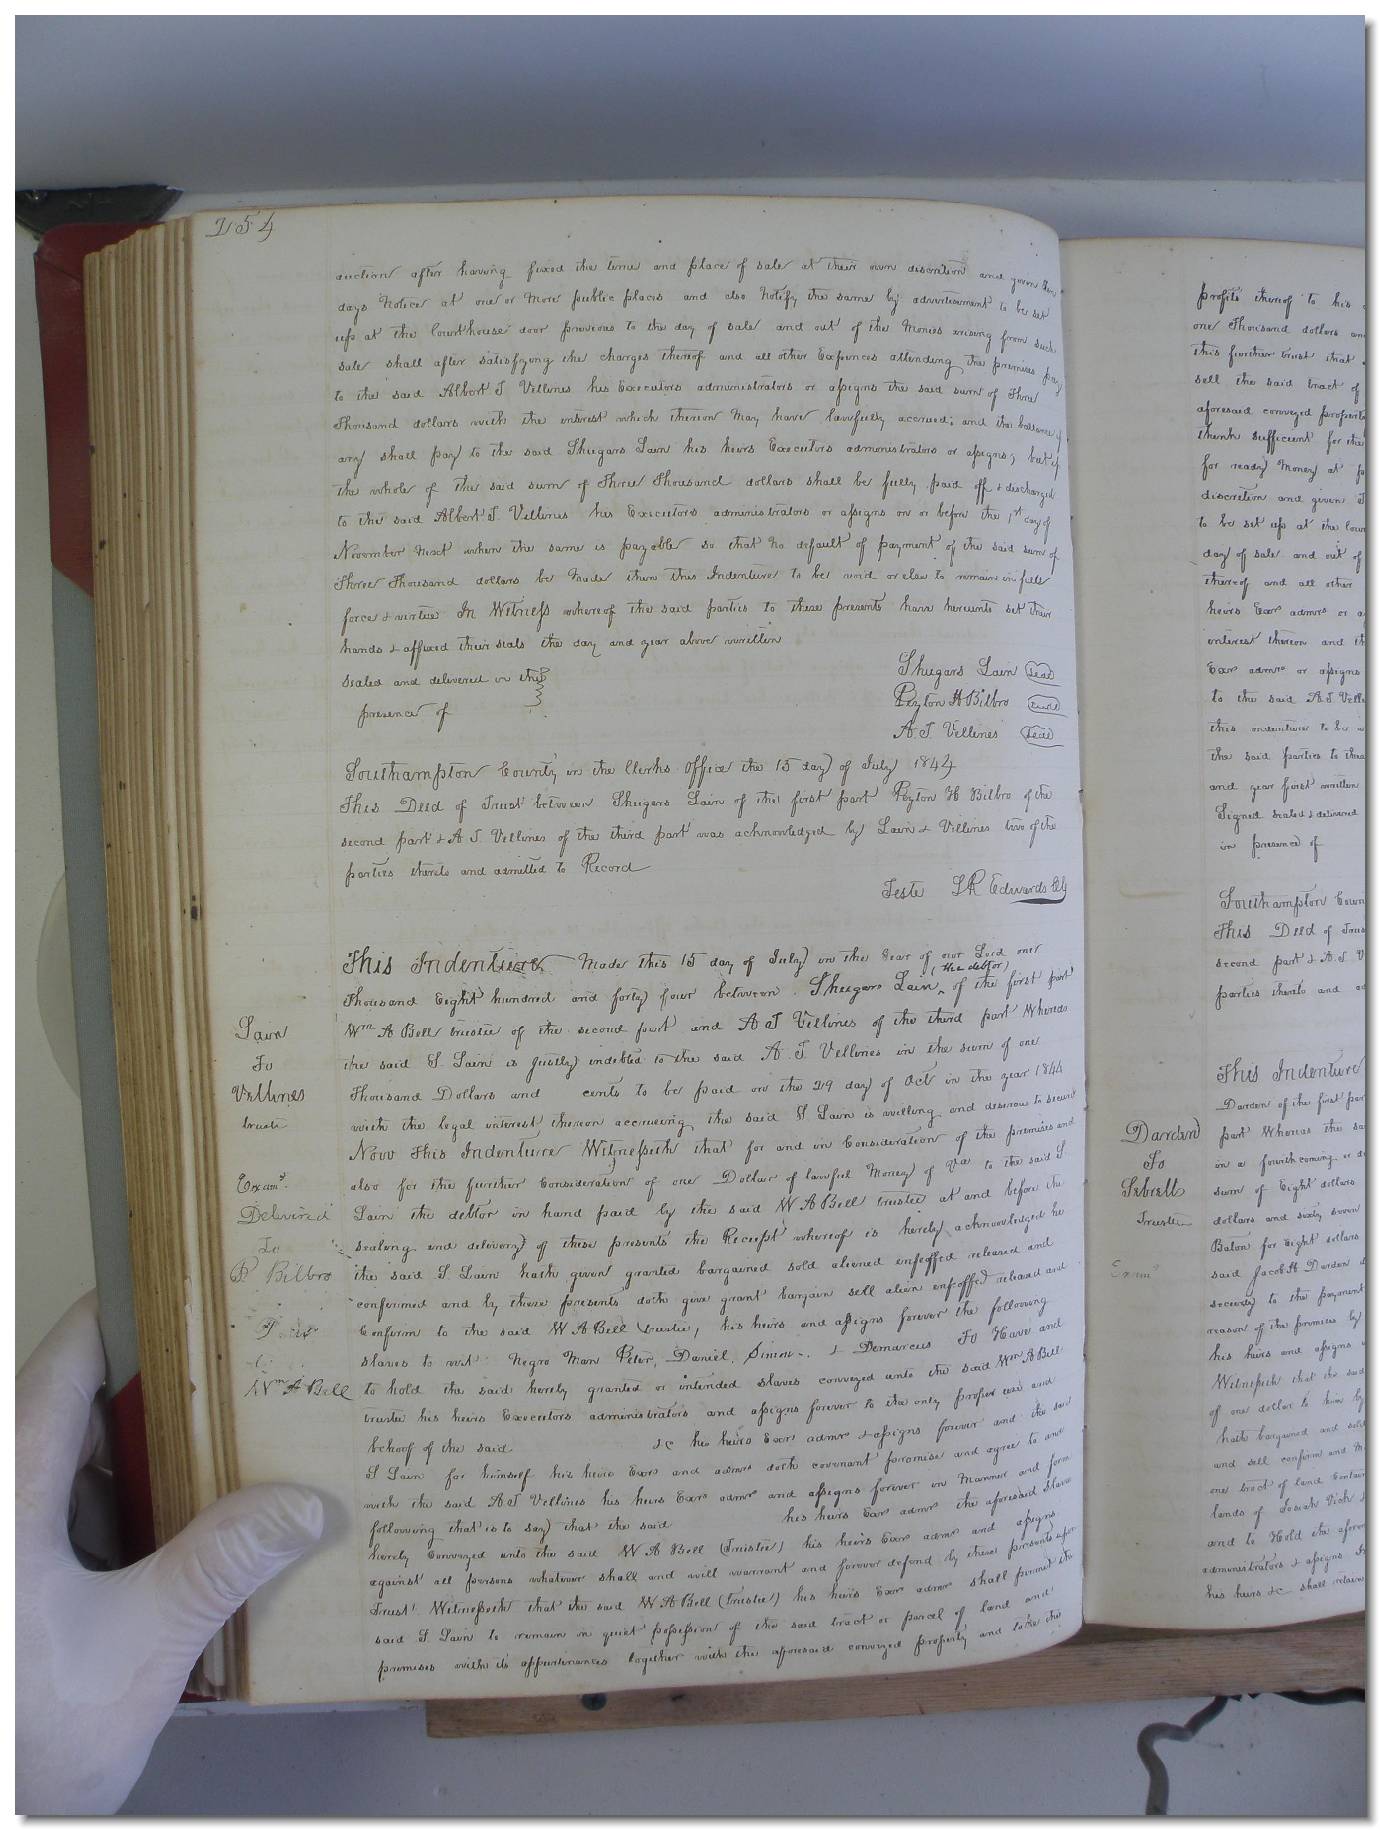 254
auction after having fixed the time and place of sale at their own discretion and given ten
days Notice at one or More public places and also Notify the same by advertisement to be set
up at the Courthouse door previous to the day of sale and out of the Monies arising from such
sale shall after satisfying the charges thereof and all other Expences attending the premises pay
to the said Albert T. Vellines his Executors administrators or assigns the said sum of Three
Thousand dollars with the interest which thereon May have lawfully accrued; and the ballance if
any shall pay to the said Shugars Lain his heirs Executors administrators or assigns; but if
the whole of the said sum of Three Thousand dollars shall be fully paid off & discharged
to the said Albert T. Vellines his Executors administrators or assigns on or before the 1st day of
November Next when the same is payable so that No default of payment of the said sum of
Three Thousand dollars be Made then this Indenture to be void or else to remain in full
force & virtue In Witness whereof the said parties to these presents have hereunto set their
hands & affixed their seals the day and year above written
Sealed and delivered in the
presence of
Shugars Lain seal
Peyton H Bilbro seal
A. T. Vellines seal
Southampton County in the Clerks Office the 15 day of July 1844
This Deed of Trust between Shugars Lain of the first part Peyton H Bilbro of the
second part & A. T. Vellines of the third part was acknowledged by Lain & Vellines two of the
parties thereto and admitted to Record
Teste L R Edwards Clk
This Indenture Made this 15 day of July in the Year of our Lord one
Thousand Eight hundred and forty four between Shugars Lain (the debtor) of the first part
Wm A Bell trustee of the second part and A T Vellines of the third part Whereas
the said S. Lain is justly indebted to the said A. T. Vellines in the sum of one
Thousand Dollars and cents to be paid on the 29 day of Oct in the year 1844
with the legal interest thereon accrueing the said S Lain is willing and desirous to secure
Now This Indenture Witnesseth that for and in Consideration of the premises and
also for the further Consideration of one Dollar of lawful Money of Va to the said S.
Lain the debtor in hand paid by the said W A Bell trustee at and before the
sealing and delivery of these presents the Receipt whereof is hereby acknowledged he
the said S. Lain hath given granted bargained sold aliened enfeoffed released and
confirmed and by these presents doth give grant bargain sell alien enfeoffed release and
Confirm to the said W A Bell trustee, his heirs and assigns forever the following
slaves to wit Negro Man Peter, Daniel, Simon & Demarcus To Have and
to hold the said hereby granted or intended slaves conveyed unto the said Wm A Bell
trustee his heirs Executors administrators and assigns forever to the only proper use and
behoof of the said &c his heirs Exors admrs & assigns forever and the said
S Lain for himself his heirs Exors and admrs doth covenant promise and agree to and
with the said A T Vellines his heirs Exors admrs and assigns forever in Manner and form
following that is to say that the said his heirs Exors admrs the aforesaid slaves
hereby Conveyed unto the said W A Bell (Trustee) his heirs Exors admrs and assigns
against all persons whatever shall and will warrant and forever defend by these presents upon
Trust Witnesseth that the said W A Bell (Trustee) his heirs Exors admrs shall permit the
said S. Lain to remain in quiet possession of the said tract or parcel of land and
premises with its appurtenances together with the aforesaid conveyed property and take the
Lain
To
Vellines
trust
Examd.
Delivered
To
P Bilbro
Wm A Bell
profits thereof to his
one Thousand dollars
this further trust that
sell the said tract of
aforesaid conveyed
think sufficient for the
for ready Money at
discretion and given
to be set up at the
day of sale and out of
thereof and all other
heirs Exors admrs or
interest thereon and
Exors admrs or assigns
to the said A. T.
this indenture to be
the said parties to
and year first written
Signed sealed & delivered
in presence of
Southampton
This Deed of
second part & A. T. V
parties thereto and
This Indenture
Darden of the first
part Whereas the
in a forthcoming
sum of Eight dollars
dollars and sixty seven
Baton for Eight dollars
said Jacob H Darden
security to the payment
reason of the premises by
his heirs and assigns
Witnesseth that the said
of one dollar to him by
hath bargained and sold
and sell confirm and
one tract of land
lands of Josiah Vick
and to Hold the
administrators & assigns
his heirs &c shall
Darden
To
Sebrell
Trustee
Examd